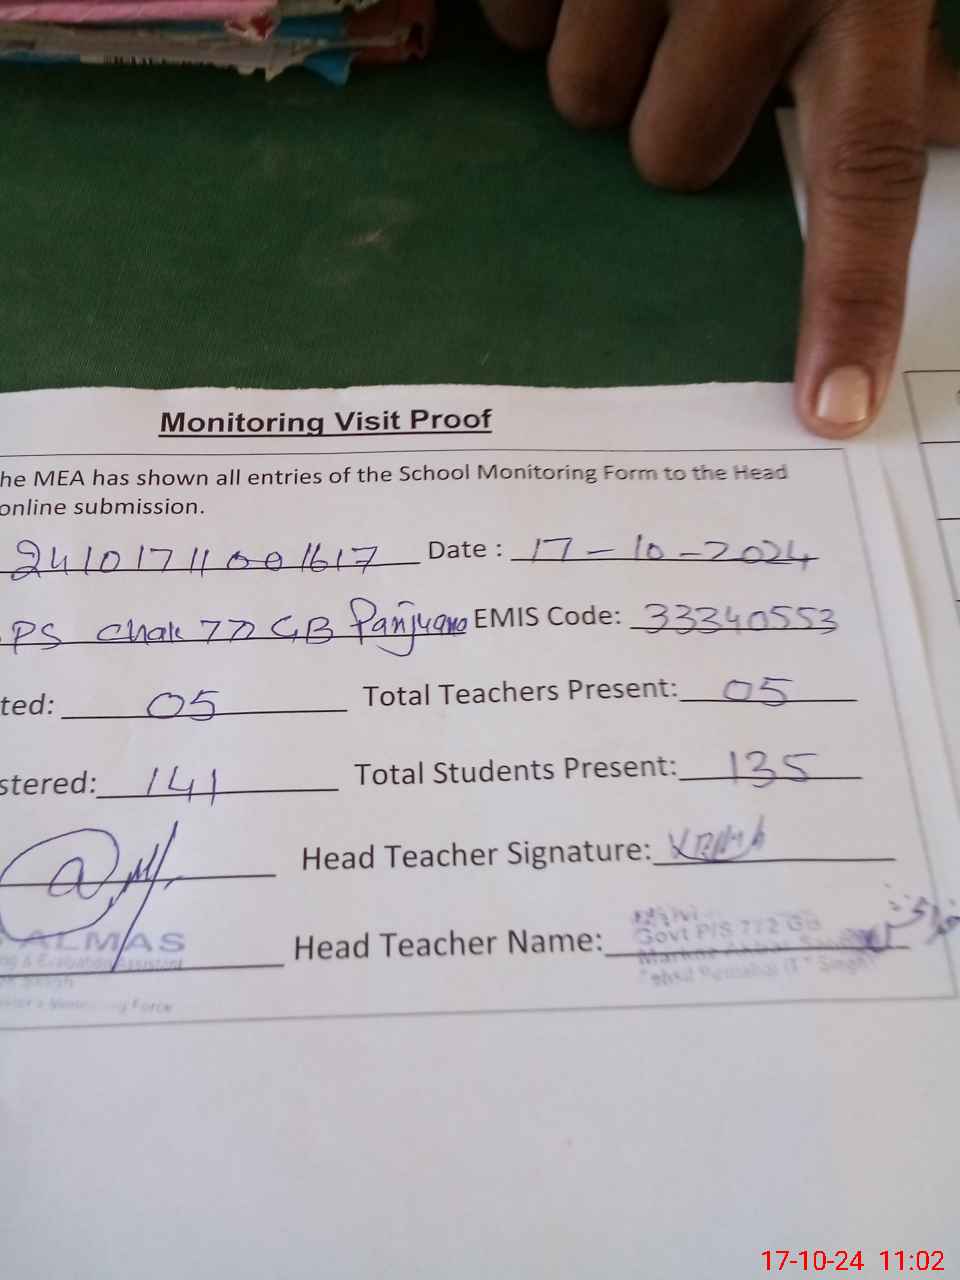 Monitoring Visit Proof
he MEA has shown all entries of the School Monitoring Form to the Head
online submission.
24101711001617 Date : 17-10-2024
PS Chak 772 GB Panjuana EMIS Code: 33340553
ted: 05 Total Teachers Present: 05
stered: 141 Total Students Present: 135
Head Teacher Signature:
ALMAS Head Teacher Name:
Govt P/S 772 GB
Force
17-10-24 11:02